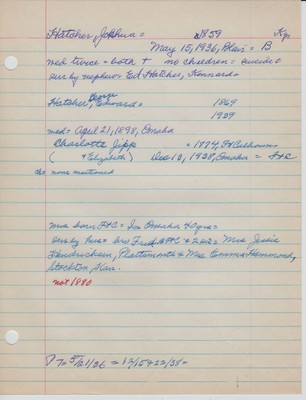 Hatcher, Joshua = 1859 Ky
May 15, 1936, Blair = B
med twice = both + no children = suicide =
sur by nephew = Ed Hatcher, Kennard =
Hatcher, George Edward = 1869
1939
med = April 21, 1898, Omaha
Charlotte Jipp = 1874, Ft Calhoun =
( + Elizabeth) Dec 10, 1938, Omaha = FtC
ch = none mentioned
mrs born FtC = In Omaha 40 yrs =
Sur by hus = bro Fred, Ft C + 2 sis = Mrs Jessie
Hendricksen, Plattsmouth + Mrs Emma Hammond,
Stockton, Kan.
not 1880
T = 5/21/36 = 12/15 + 22/38 =